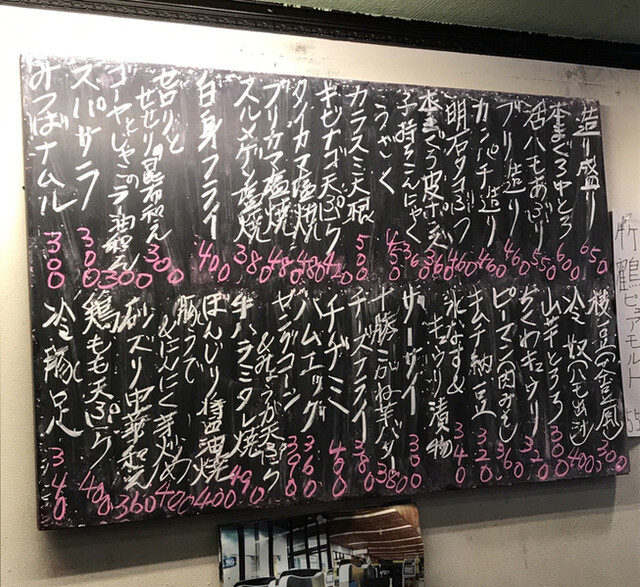 造り盛り 650
本まぐろ中とろ 600
活ハモあぶり 550
ブリ造り 460
カンパチ造り 460
明石タコぶつ 460
本まぐろ皮ポン酢 360
子持ちこんにゃく 360
うざく 450
カラスミ大根 500
キビナゴ天ぷら 420
タイカマ塩焼 480
ブリカマ塩焼 480
スルメゲソ塩焼 380
白身フライ 400
セロリと
せせりの昆布和え 300
ゴーヤとじゃこのラー油和え 300
スパサラ 300
みつばナムル 300
枝豆 300
冷奴 400
山芋とろろ 300
ちくわキュウリ 320
ピーマン(肉みそ) 360
キムチ納豆 320
水なす&
キュウリ漬物 340
ザーサイ 300
十勝こがね芋バター 380
チーズフライ 380
チヂミ 400
ハムエッグ 360
ヤングコーン
&みょうが天ぷら 390
牛ハラミタレ焼 490
ぼんじり醤油焼 400
豚うで
&にんにく芽炒め 420
砂ズリ中華和え 360
鶏もも天ぷら 400
冷豚足 340
鶴
ピュアモルト
55